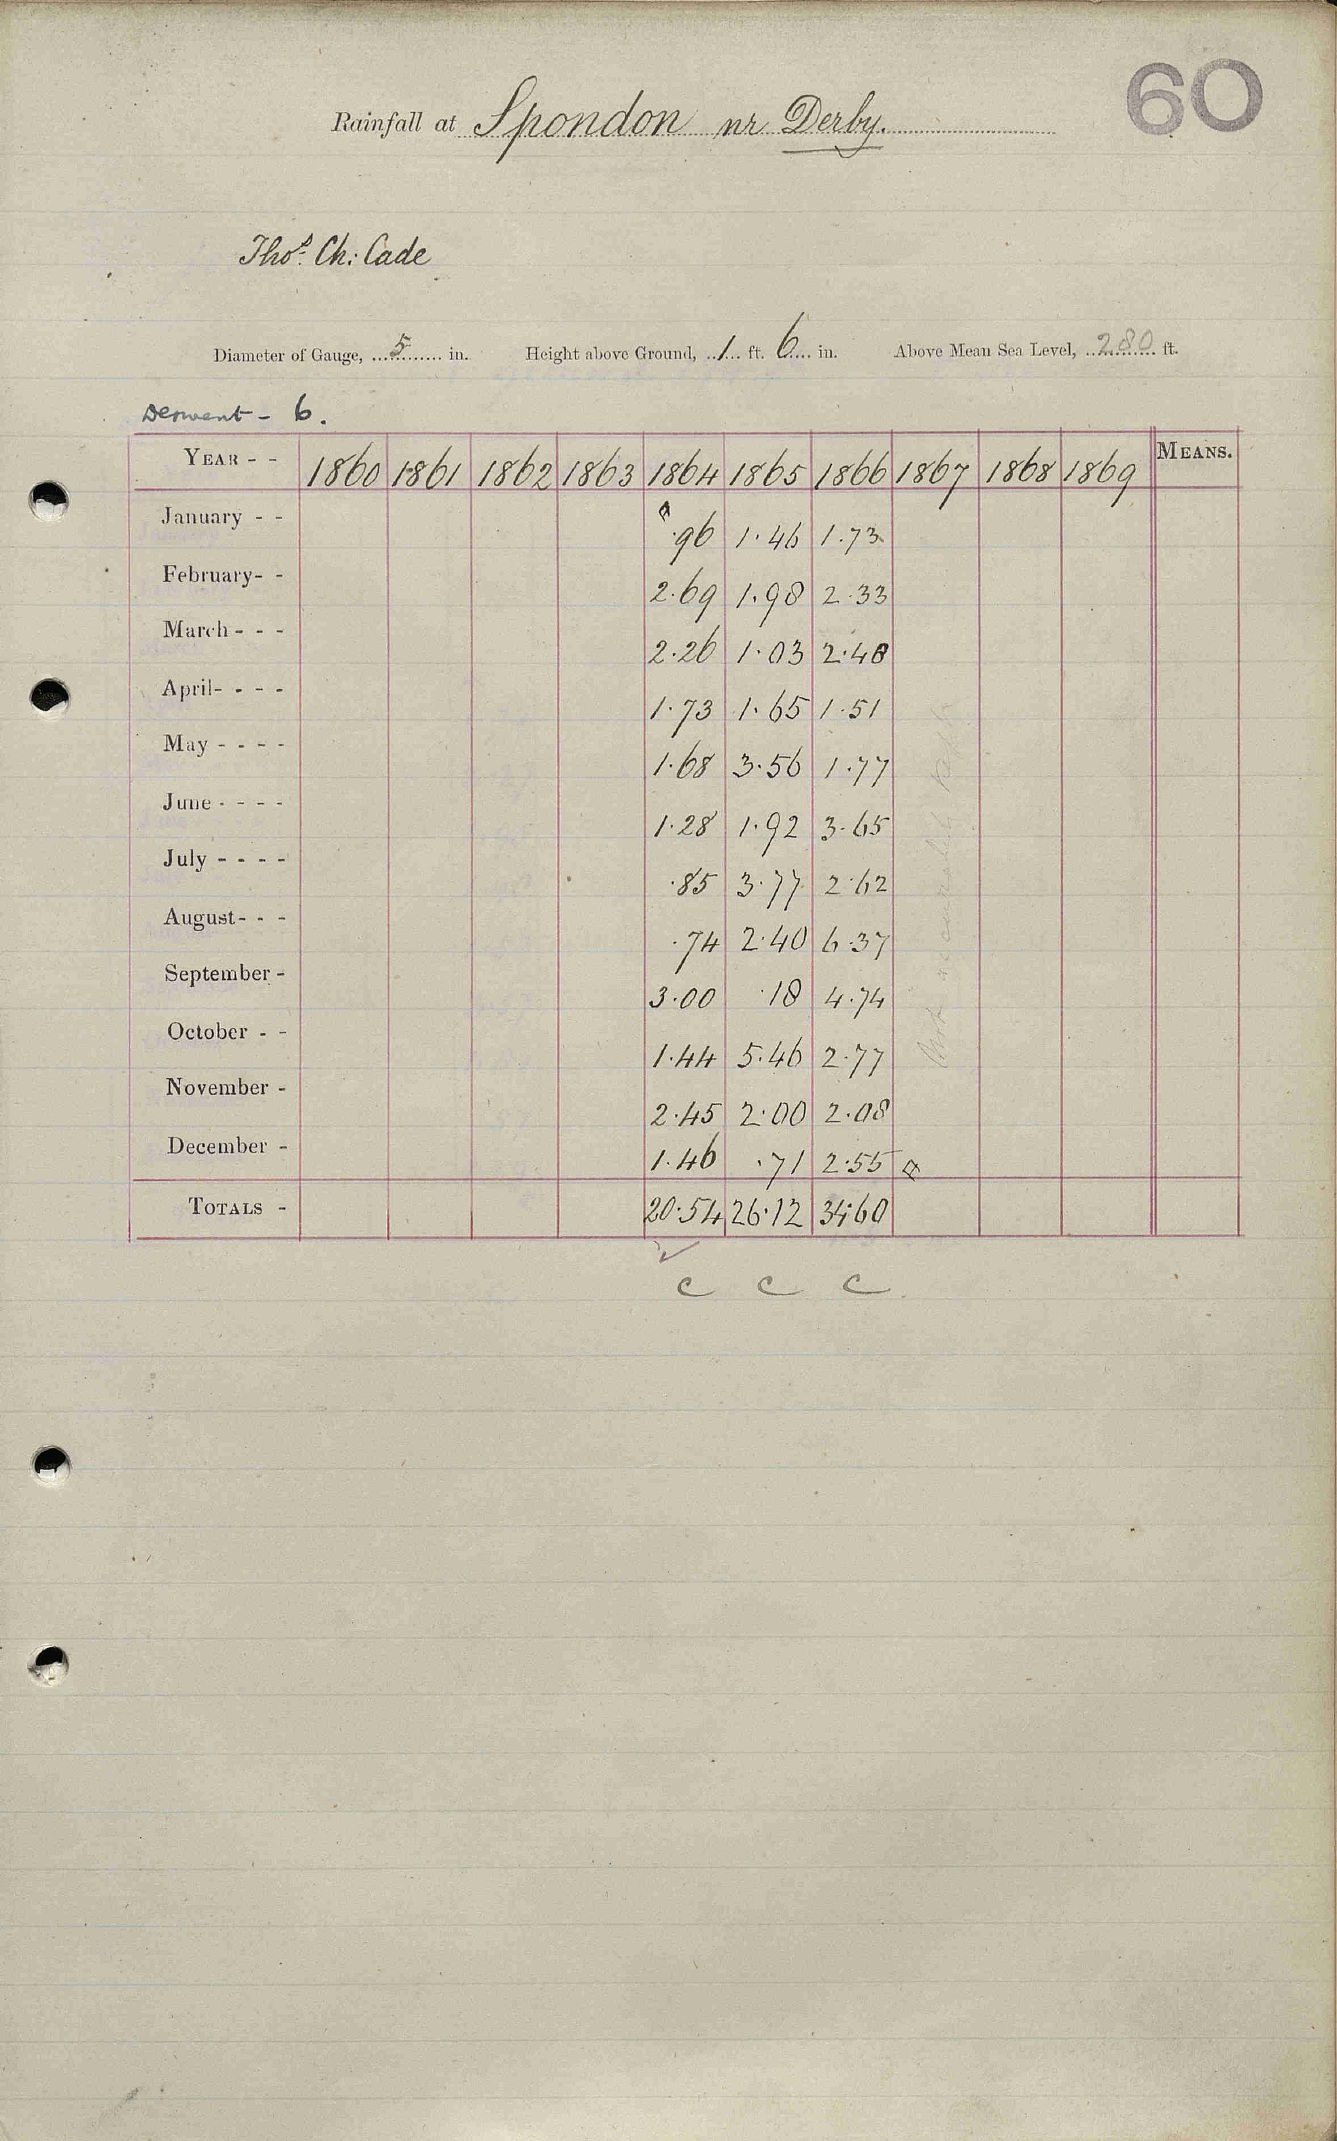 60
Rainfall at Spondon nr Derby.
Thos. Ch: Cade
Diameter of Gauge, 5 in. Height above Ground, 1 ft. 6 in. Above Mean Sea Level, 280 ft.
Derwent - 6.
YEAR - - 1860 1861 1862 1863 1864 1865 1866 1867 1868 1869 MEANS.
January - - ·96 1·46 1·73
February - - 2·69 1·98 2·33
March - - - 2·26 1·03 2·48
April - - - - 1·73 1·65 1·51
May - - - - 1·68 3·56 1·77
June - - - - 1·28 1·92 3·65
July - - - - ·85 3·77 2·62
August - - - ·74 2·40 6·37
September - 3·00 ·18 4·74
October - - 1·44 5·46 2·77
November - 2·45 2·00 2·08
December - 1·46 ·71 2·55
TOTALS - 20·54 26·12 34·60
c c c